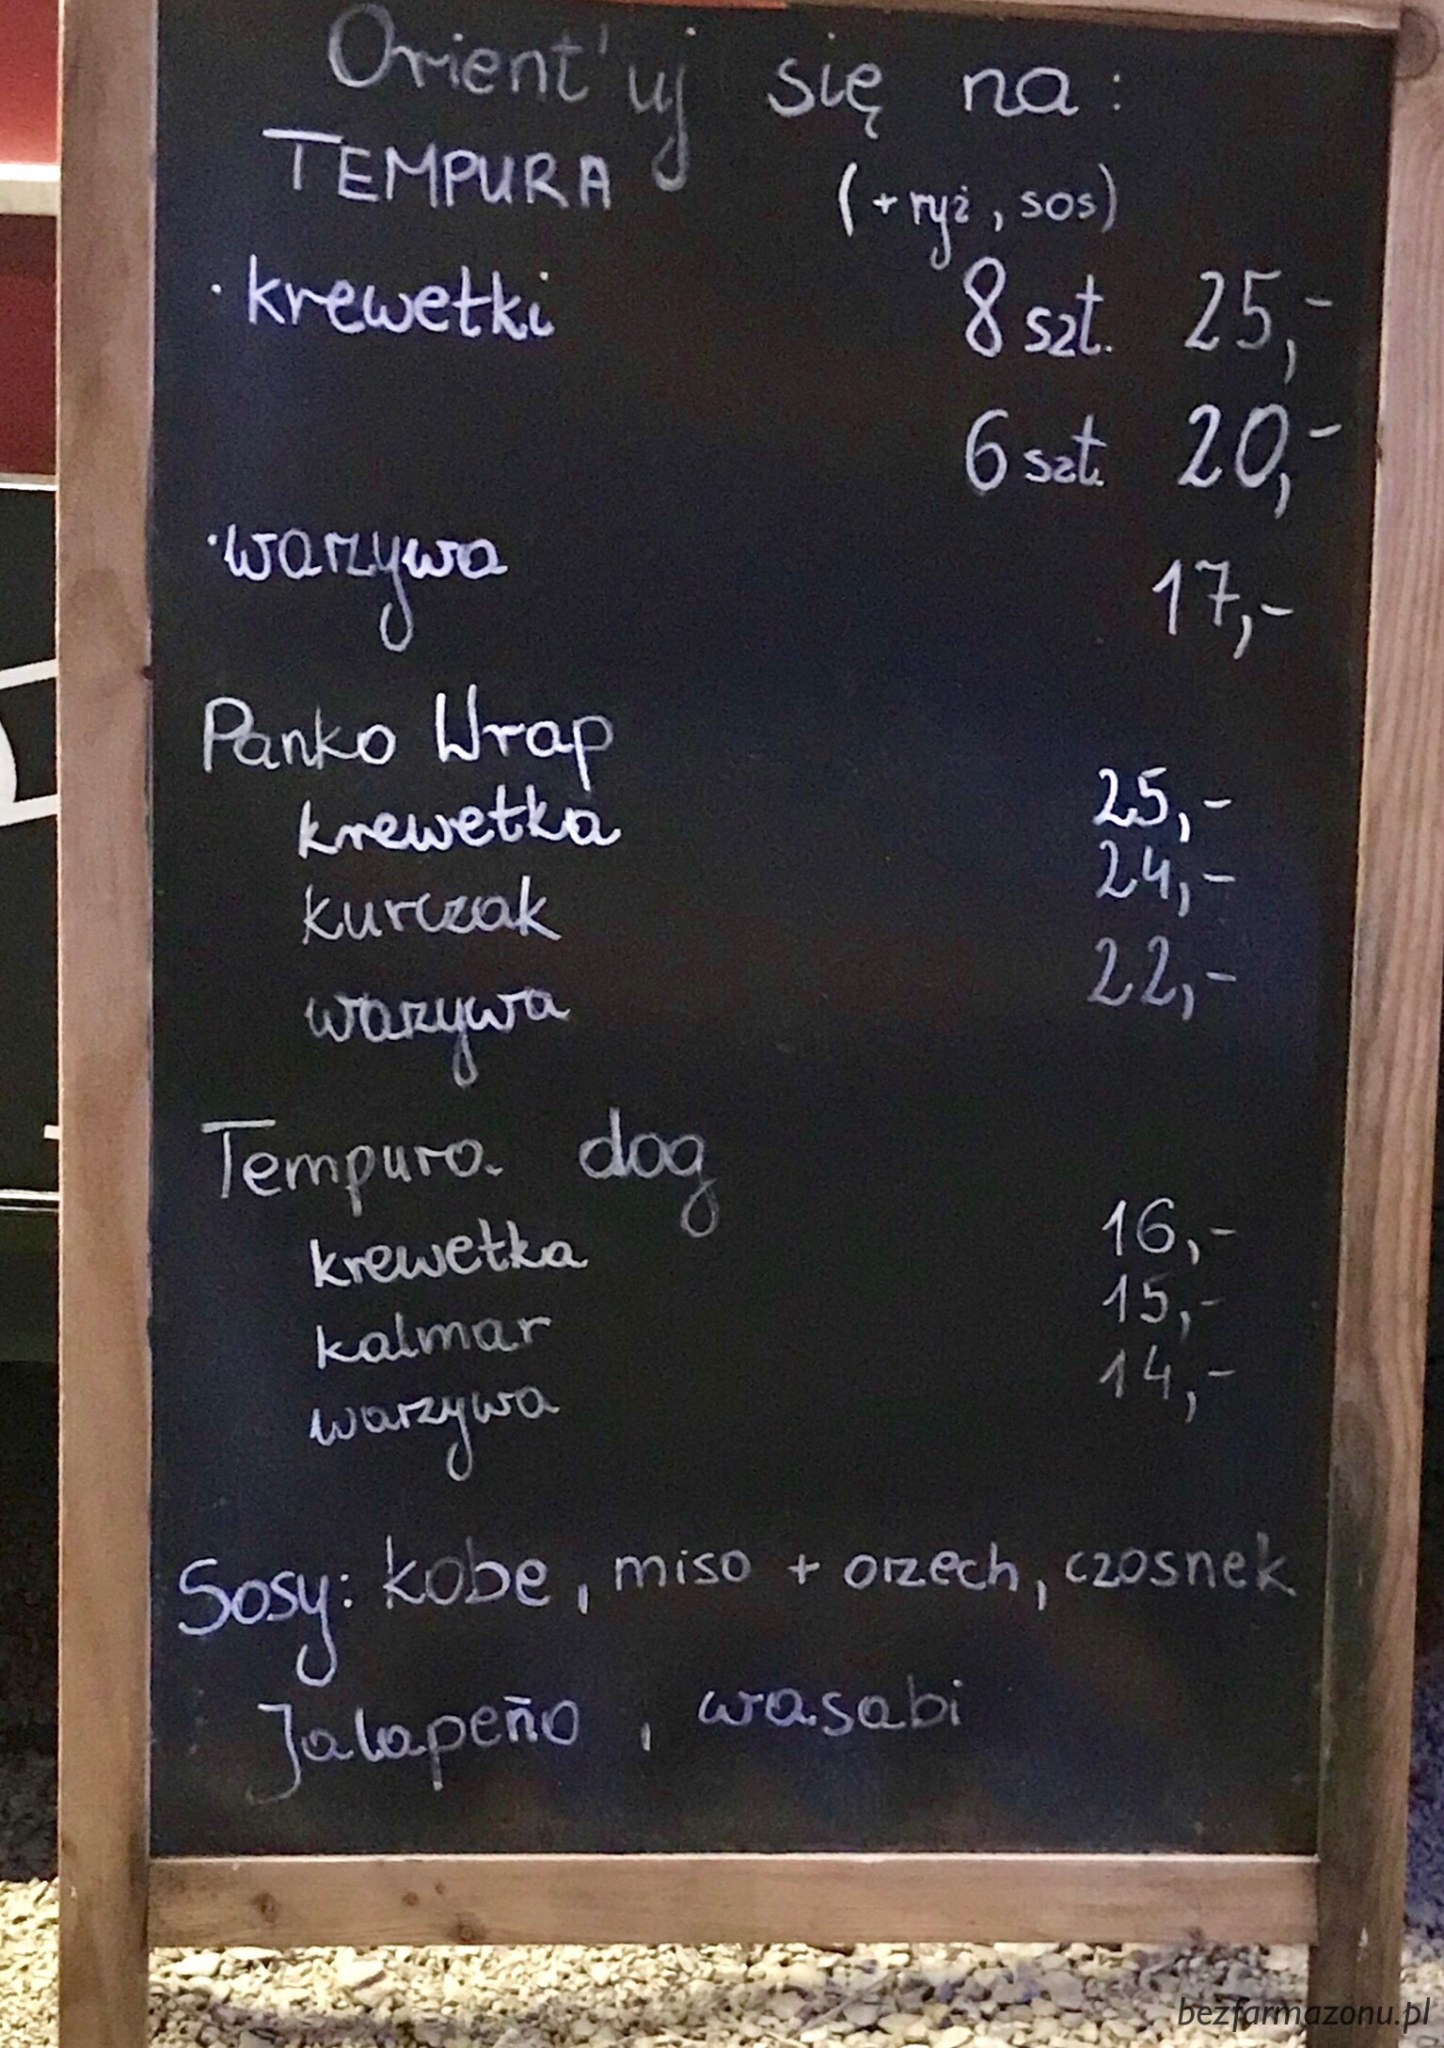 Orient'uj się na:
TEMPURA (+ryż, sos)
· krewetki 8 szt. 25,-
6 szt. 20,-
· warzywa 17,-
Panko Wrap
krewetka 25,-
kurczak 24,-
warzywa 22,-
Tempura dog
krewetka 16,-
kalmar 15,-
warzywa 14,-
Sosy: kobe, miso + orzech, czosnek
Jalapeño, wasabi
bezfarmazonu.pl